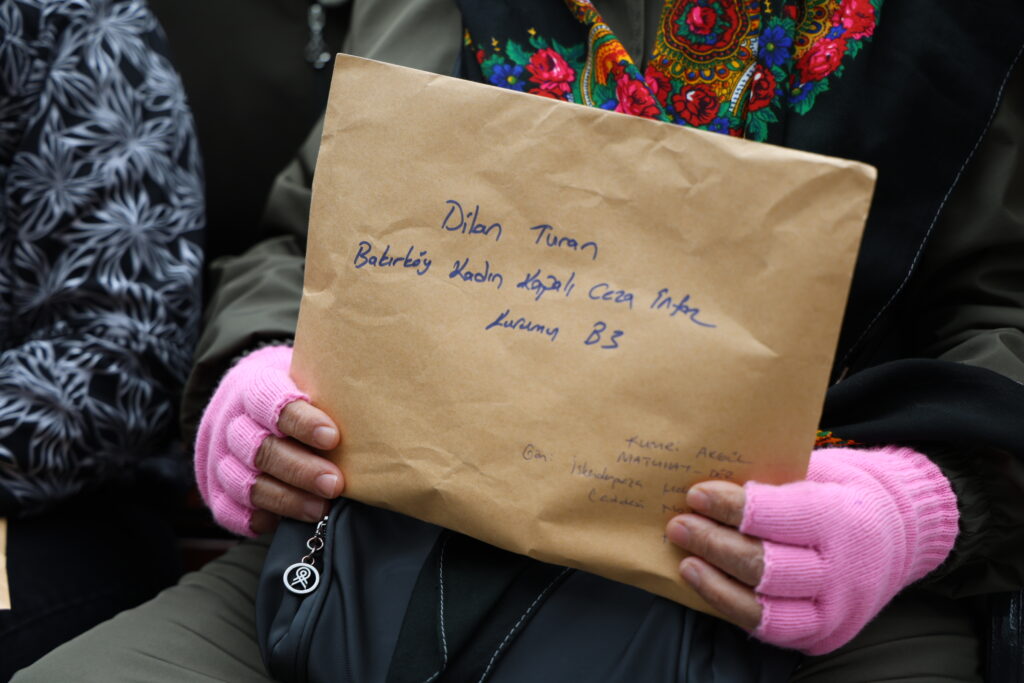 Dilan Turan
Bakırköy Kadın Kapalı Ceza İnfaz
Kurumu B3
AKGÜL
MATUHAY-DER
Gön: İskenderpaşa
Caddesi